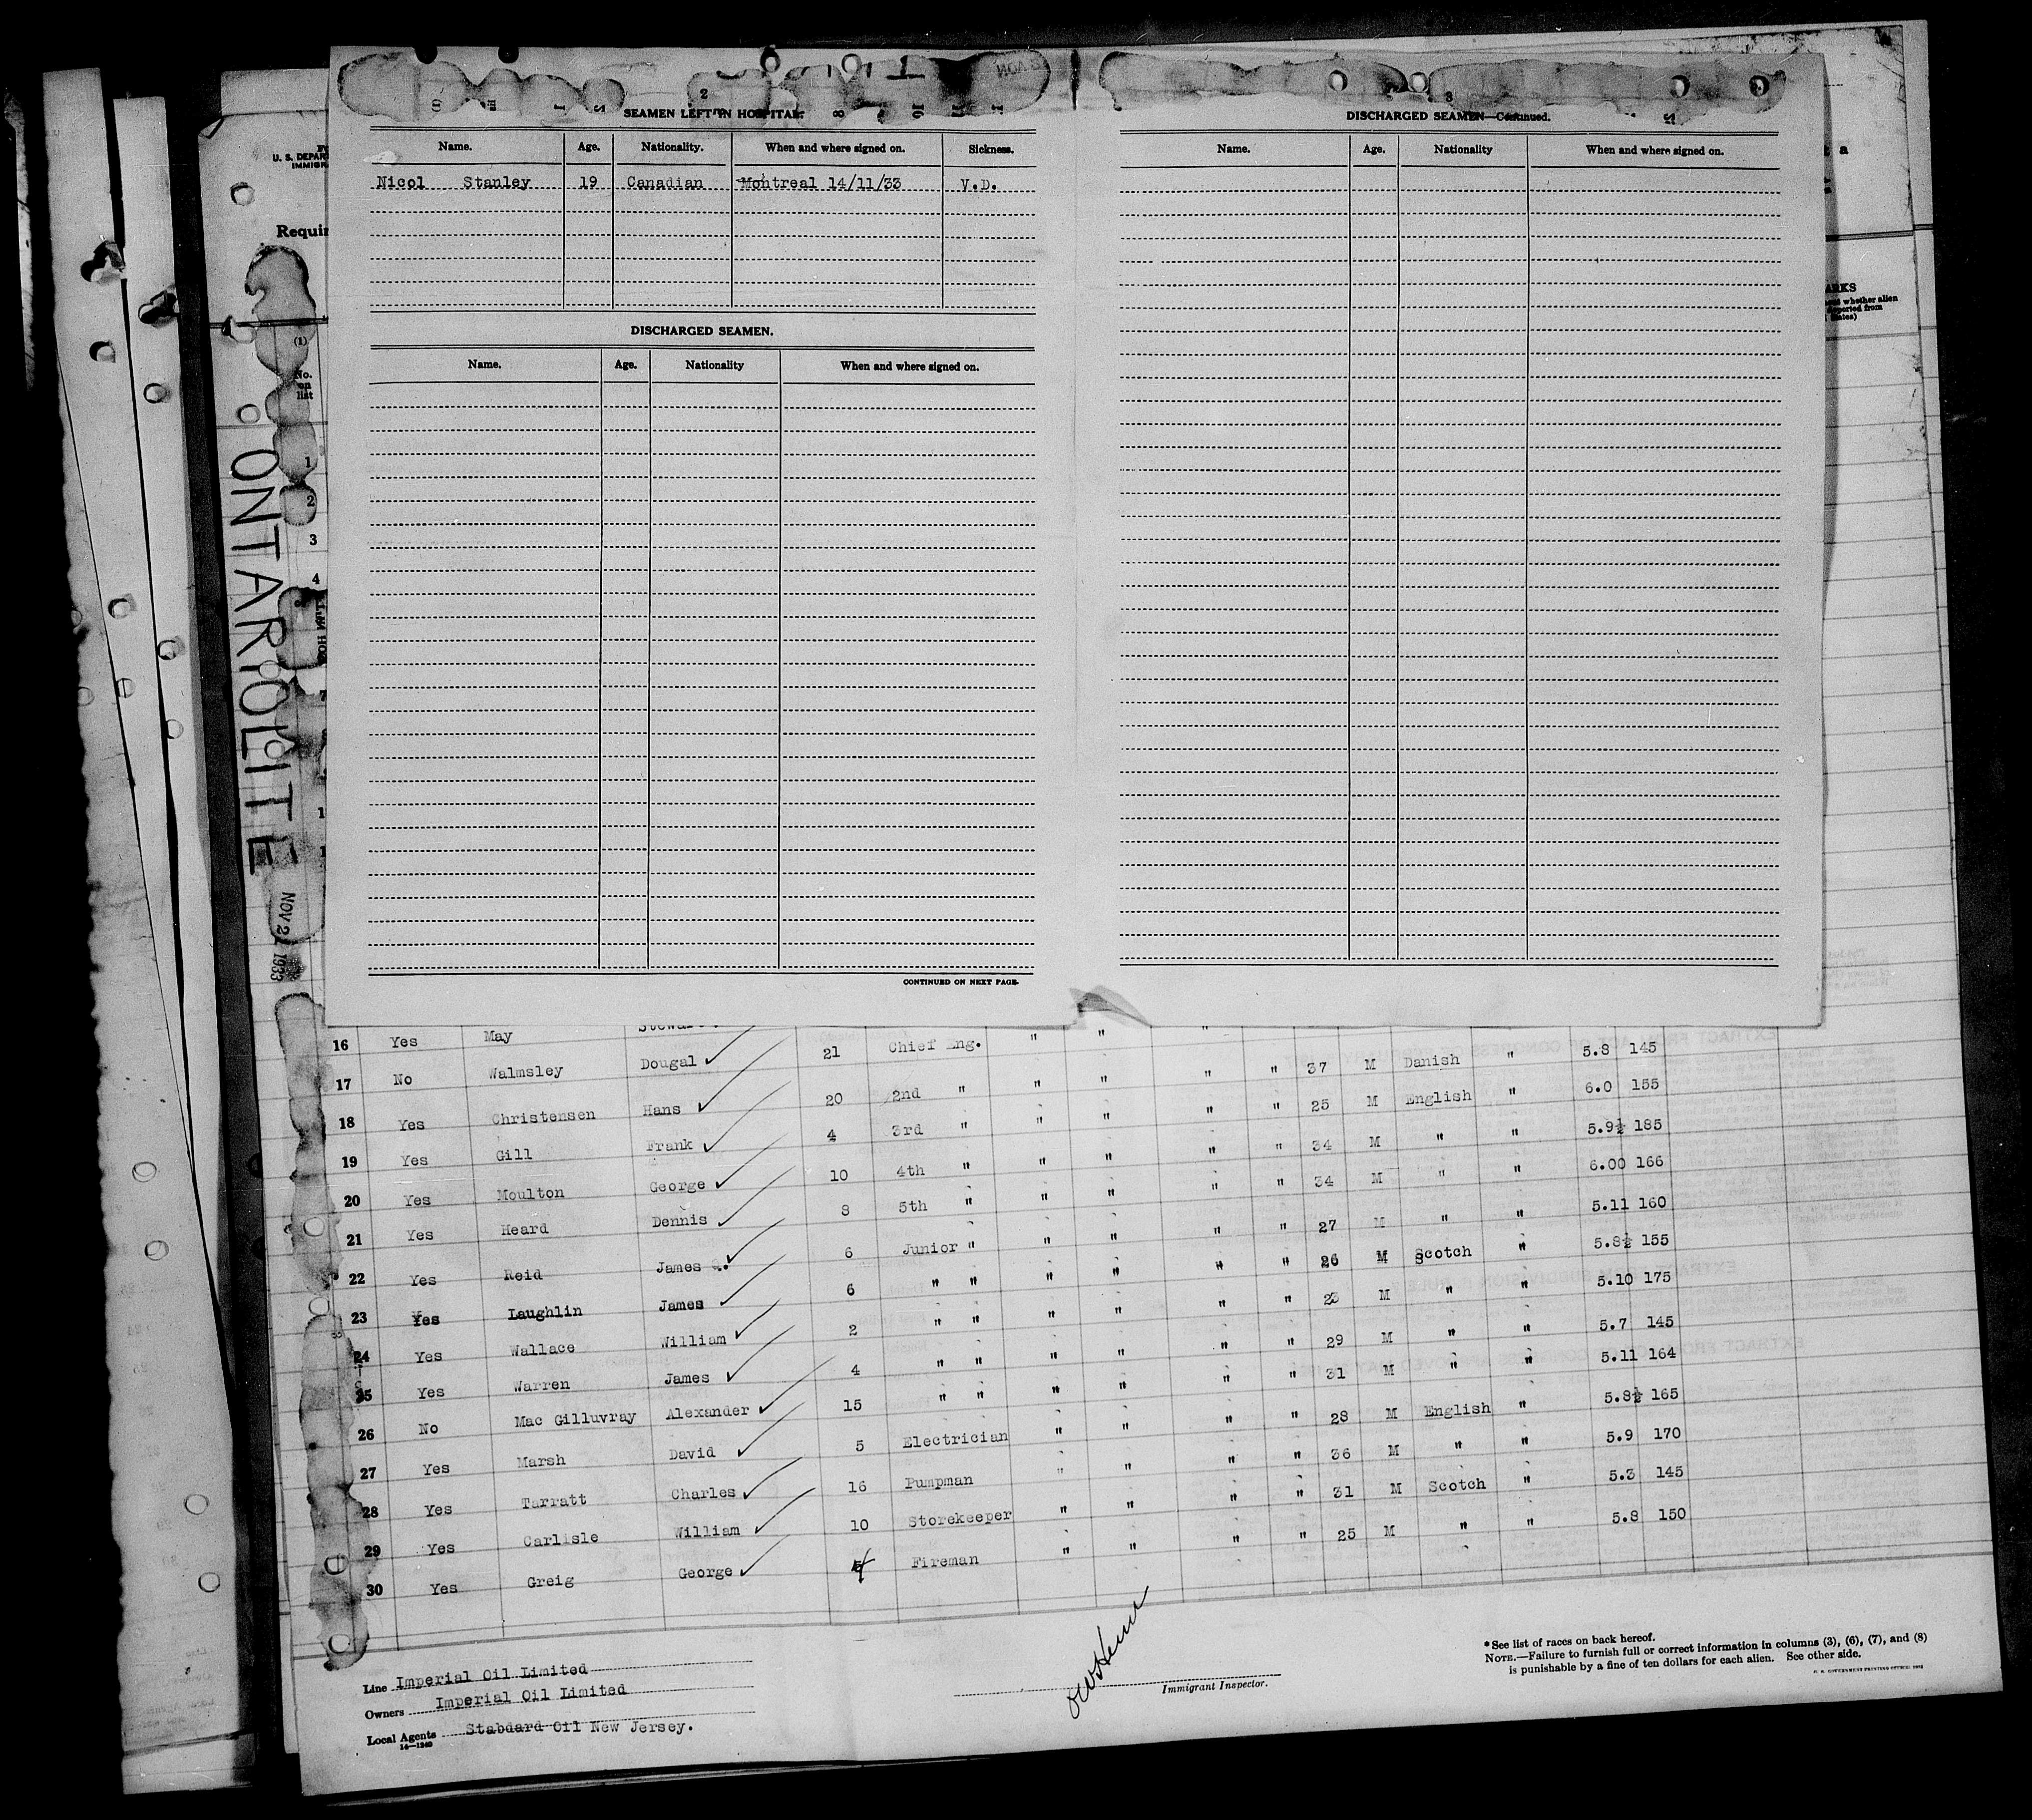 2
SEAMEN LEFT IN HOSPITAL.
Name. Age. Nationality. When and where signed on. Sickness.
Nicol Stanley 19 Canadian Montreal 14/11/33 V.D.
DISCHARGED SEAMEN.
Name. Age. Nationality When and where signed on.
CONTINUED ON NEXT PAGE.
3
DISCHARGED SEAMEN—Continued.
Name. Age. Nationality When and where signed on.
U. S. DEPAR
IMMIGR
Requir
(1)
No.
on
list
1
2
3
4
ONTARIOLITE
NOV 2 1933
ARKS
whether alien
deported from
States)
16 Yes May Stewar
17 No Walmsley Dougal 21 Chief Eng. " " "
18 Yes Christensen Hans 20 2nd " " " " " 37 M Danish " 5.8 145
19 Yes Gill Frank 4 3rd " " " " " 25 M English " 6.0 155
20 Yes Moulton George 10 4th " " " " " 34 M " " 5.9½ 185
21 Yes Heard Dennis 8 5th " " " " " 34 M " " 6.00 166
22 Yes Reid James 6 Junior " " " " " 27 M " " 5.11 160
23 Yes Laughlin James 6 " " " " " " 26 M Scotch " 5.8½ 155
24 Yes Wallace William 2 " " " " " " 23 M " " 5.10 175
25 Yes Warren James 4 " " " " " " 29 M " " 5.7 145
26 No Mac Gilluvray Alexander 15 " " " " " " 31 M " " 5.11 164
27 Yes Marsh David 5 Electrician " " " " 28 M English " 5.8½ 165
28 Yes Tarratt Charles 16 Pumpman " " " " 36 M " " 5.9 170
29 Yes Carlisle William 10 Storekeeper " " " " 31 M Scotch " 5.3 145
30 Yes Greig George Fireman " " " " 25 M " " 5.8 150
Line Imperial Oil Limited
Owners Imperial Oil Limited
Local Agents Stabdard Oil New Jersey.
14—1240
Immigrant Inspector.
* See list of races on back hereof.
NOTE.—Failure to furnish full or correct information in columns (3), (6), (7), and (8)
is punishable by a fine of ten dollars for each alien. See other side.